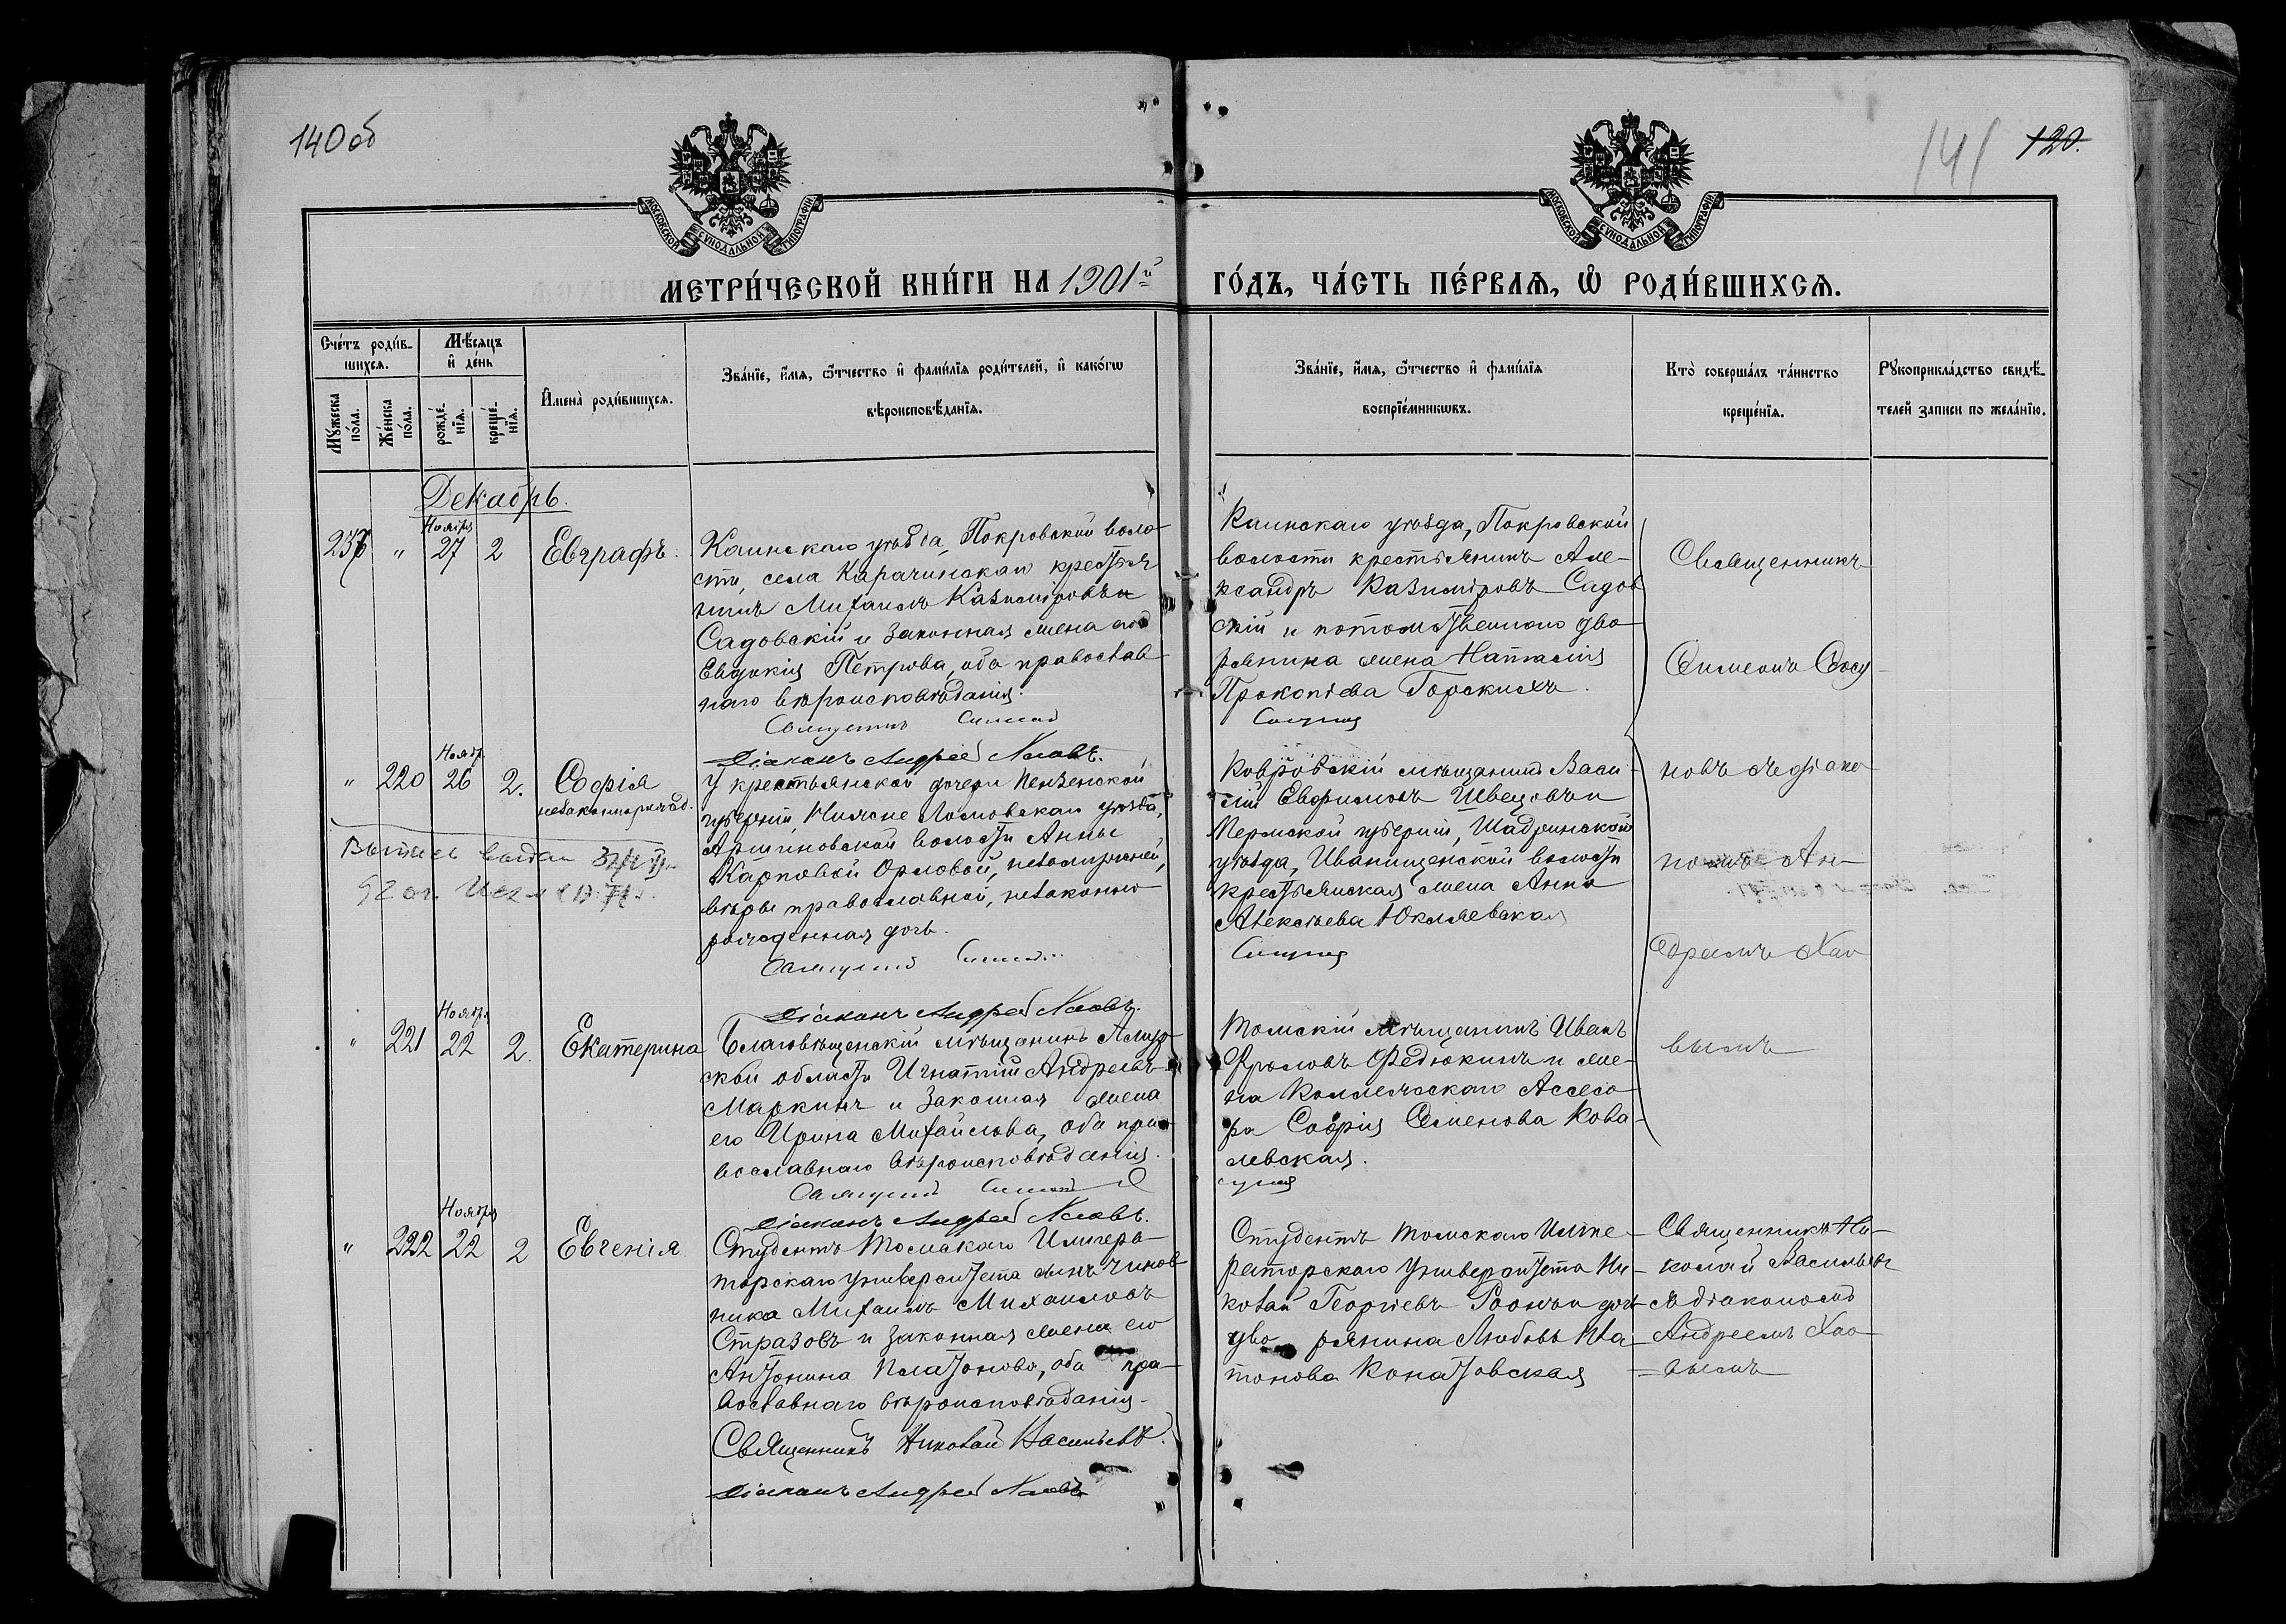 140об
141
120.
МОСКОВСКОЙ СѴНОДАЛЬНОЙ ТИПОГРАФІИ
МОСКОВСКОЙ СѴНОДАЛЬНОЙ ТИПОГРАФІИ
МЕТРИ́ЧЕСКОЙ КНИ́ГИ НА 1901й
ГО́ДЪ, ЧА́СТЬ ПЕ́РВАѦ, Ѡ РОДИ́ВШИХСѦ.
Сче́тъ роди́в-
шихсѧ.
Мѣ́сѧцъ
и҆ де́нь
Мꙋ́жеска
по́ла.
Же́нска
по́ла.
рожде́-
нїѧ.
креще́-
нїѧ.
И҆мена̀ роди́вшихсѧ.
Зва́нїе, и҆́мѧ, ѻ҆́тчество и҆ фами́лїѧ роди́телей, и҆ како́гѡ
вѣроисповѣ́данїѧ.
Зва́нїе, и҆́мѧ, ѻ҆́тчество и҆ фами́лїѧ
воспрїе́мникѡвъ.
Кто̀ соверша́лъ та́инство
креще́нїѧ.
Рꙋкоприкла́дство свидѣ́-
телей записи по жела́нїю.
Декабрь.
Ноября
" 27 2 Евграфъ.
Каинскаго уѣзда, Покровской воло-
сти, села Карачинскаго крестья
нинъ Михаилъ Казиміровъ
Садовскій и законная жена его
Евдокія Петрова, оба православ-
наго вѣроисповѣданія.
Священникъ Симеонъ
Діаконъ Андрей Хаовъ.
Каинскаго уѣзда, Покровской
волости крестьянинъ Але-
ксандръ Казиміровъ Садов
скій и потомственнаго дво-
рянина жена Наталія
Прокопіева Горскихъ.
Священникъ
Симеонъ Сосу-
новъ съ діако-
номъ Ан-
дреемъ Хао-
вымъ
Ноябр.
" 220 26 2. Софія
незаконнорожд.
У крестьянской дочери Пензенской
губерніи, Нижне Ломовскаго уѣзда,
Аршиновской волости Анны
Карповой Орловой, незамужней,
вѣры православной, незаконно
рожденная дочь.
Священникъ Симеонъ
Діаконъ Андрей Хаовъ.
Ковровскій мѣщанинъ Васи-
лій Евфимовъ Швецовъ и
Пермской губерніи, Шадринскаго
уѣзда, Иванищенской волости
крестьянская жена Анна
Алексѣева Юкляевская
Ноября
" 221 22 2. Екатерина
Благовѣщенскій мѣщанинъ Амур-
ской области Игнатій Андреевъ
Маркинъ и законная жена
его Ирина Михайлова, оба пра-
вославнаго вѣроисповѣданія.
Священникъ Симеонъ
Діаконъ Андрей Хаовъ.
Томскій мѣщанинъ Иванъ
Фроловъ Федюкинъ и же-
на Коллежскаго Ассесо-
ра Софія Семенова Кова-
левская.
Ноября
" 222 22 2 Евгенія
Студентъ Томскаго Импера-
торскаго Университета сынъ чинов
ника Михаилъ Михаиловъ
Стразовъ и законная жена его
Антонина Платонова, оба пра-
вославнаго вѣроисповѣданія.
Священникъ Николай Васильевъ.
Діаконъ Андрей Хаовъ
Студентъ Томскаго Импе-
раторскаго Университета Ни-
колай Георгіевъ и дочь
дворянина Любовь Пла-
тонова Конатовская
Священникъ Ни-
колай Васильевъ
съ діакономъ
Андреемъ Хао-
вымъ